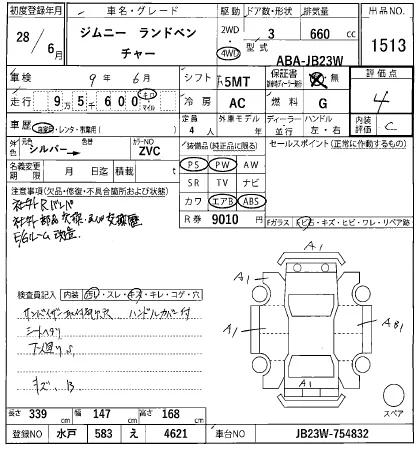 初度登録年月 車名・グレード 駆動 ドア数・形状 排気量 出品NO.
28/6月 ジムニー ランドベン 2WD 3 660 cc
チャー 4WD 型式 ABA-JB23W 1513
車検 9年 6月 シフト 5MT 保証書 有・無 評価点
走行 9万5千600 キロ マイル 冷房 AC 燃料 G 4
車歴 自家用・レンタ・事業用( ) 定員 4人 外車モデル 年 ディーラー 並行 ハンドル 左・右 内装評価 C
外色 元色 シルバー→ カラーNO ZVC 装備品(純正品に限る) セールスポイント(正常に作動するもの)
名義変更期限 月 日迄 積載 PS PW AW
注意事項(欠品・修復・不具合箇所および状態) SR TV ナビ
社外Rバンパ カワ エアB ABS
R券 9010円
Fガラス トビ石・キズ・ヒビ・ワレ・リペア跡
検査員記入 内装 汚レ・スレ・キズ・キレ・コゲ・穴
ハンドルカバー付
シートヘタリ
キズ、B
A1
A1 A1
A1 AB1
A1
スペア
長さ 339 cm 幅 147 cm 高さ 168 cm
登録NO 水戸 583 え 4621 車台NO JB23W-754832